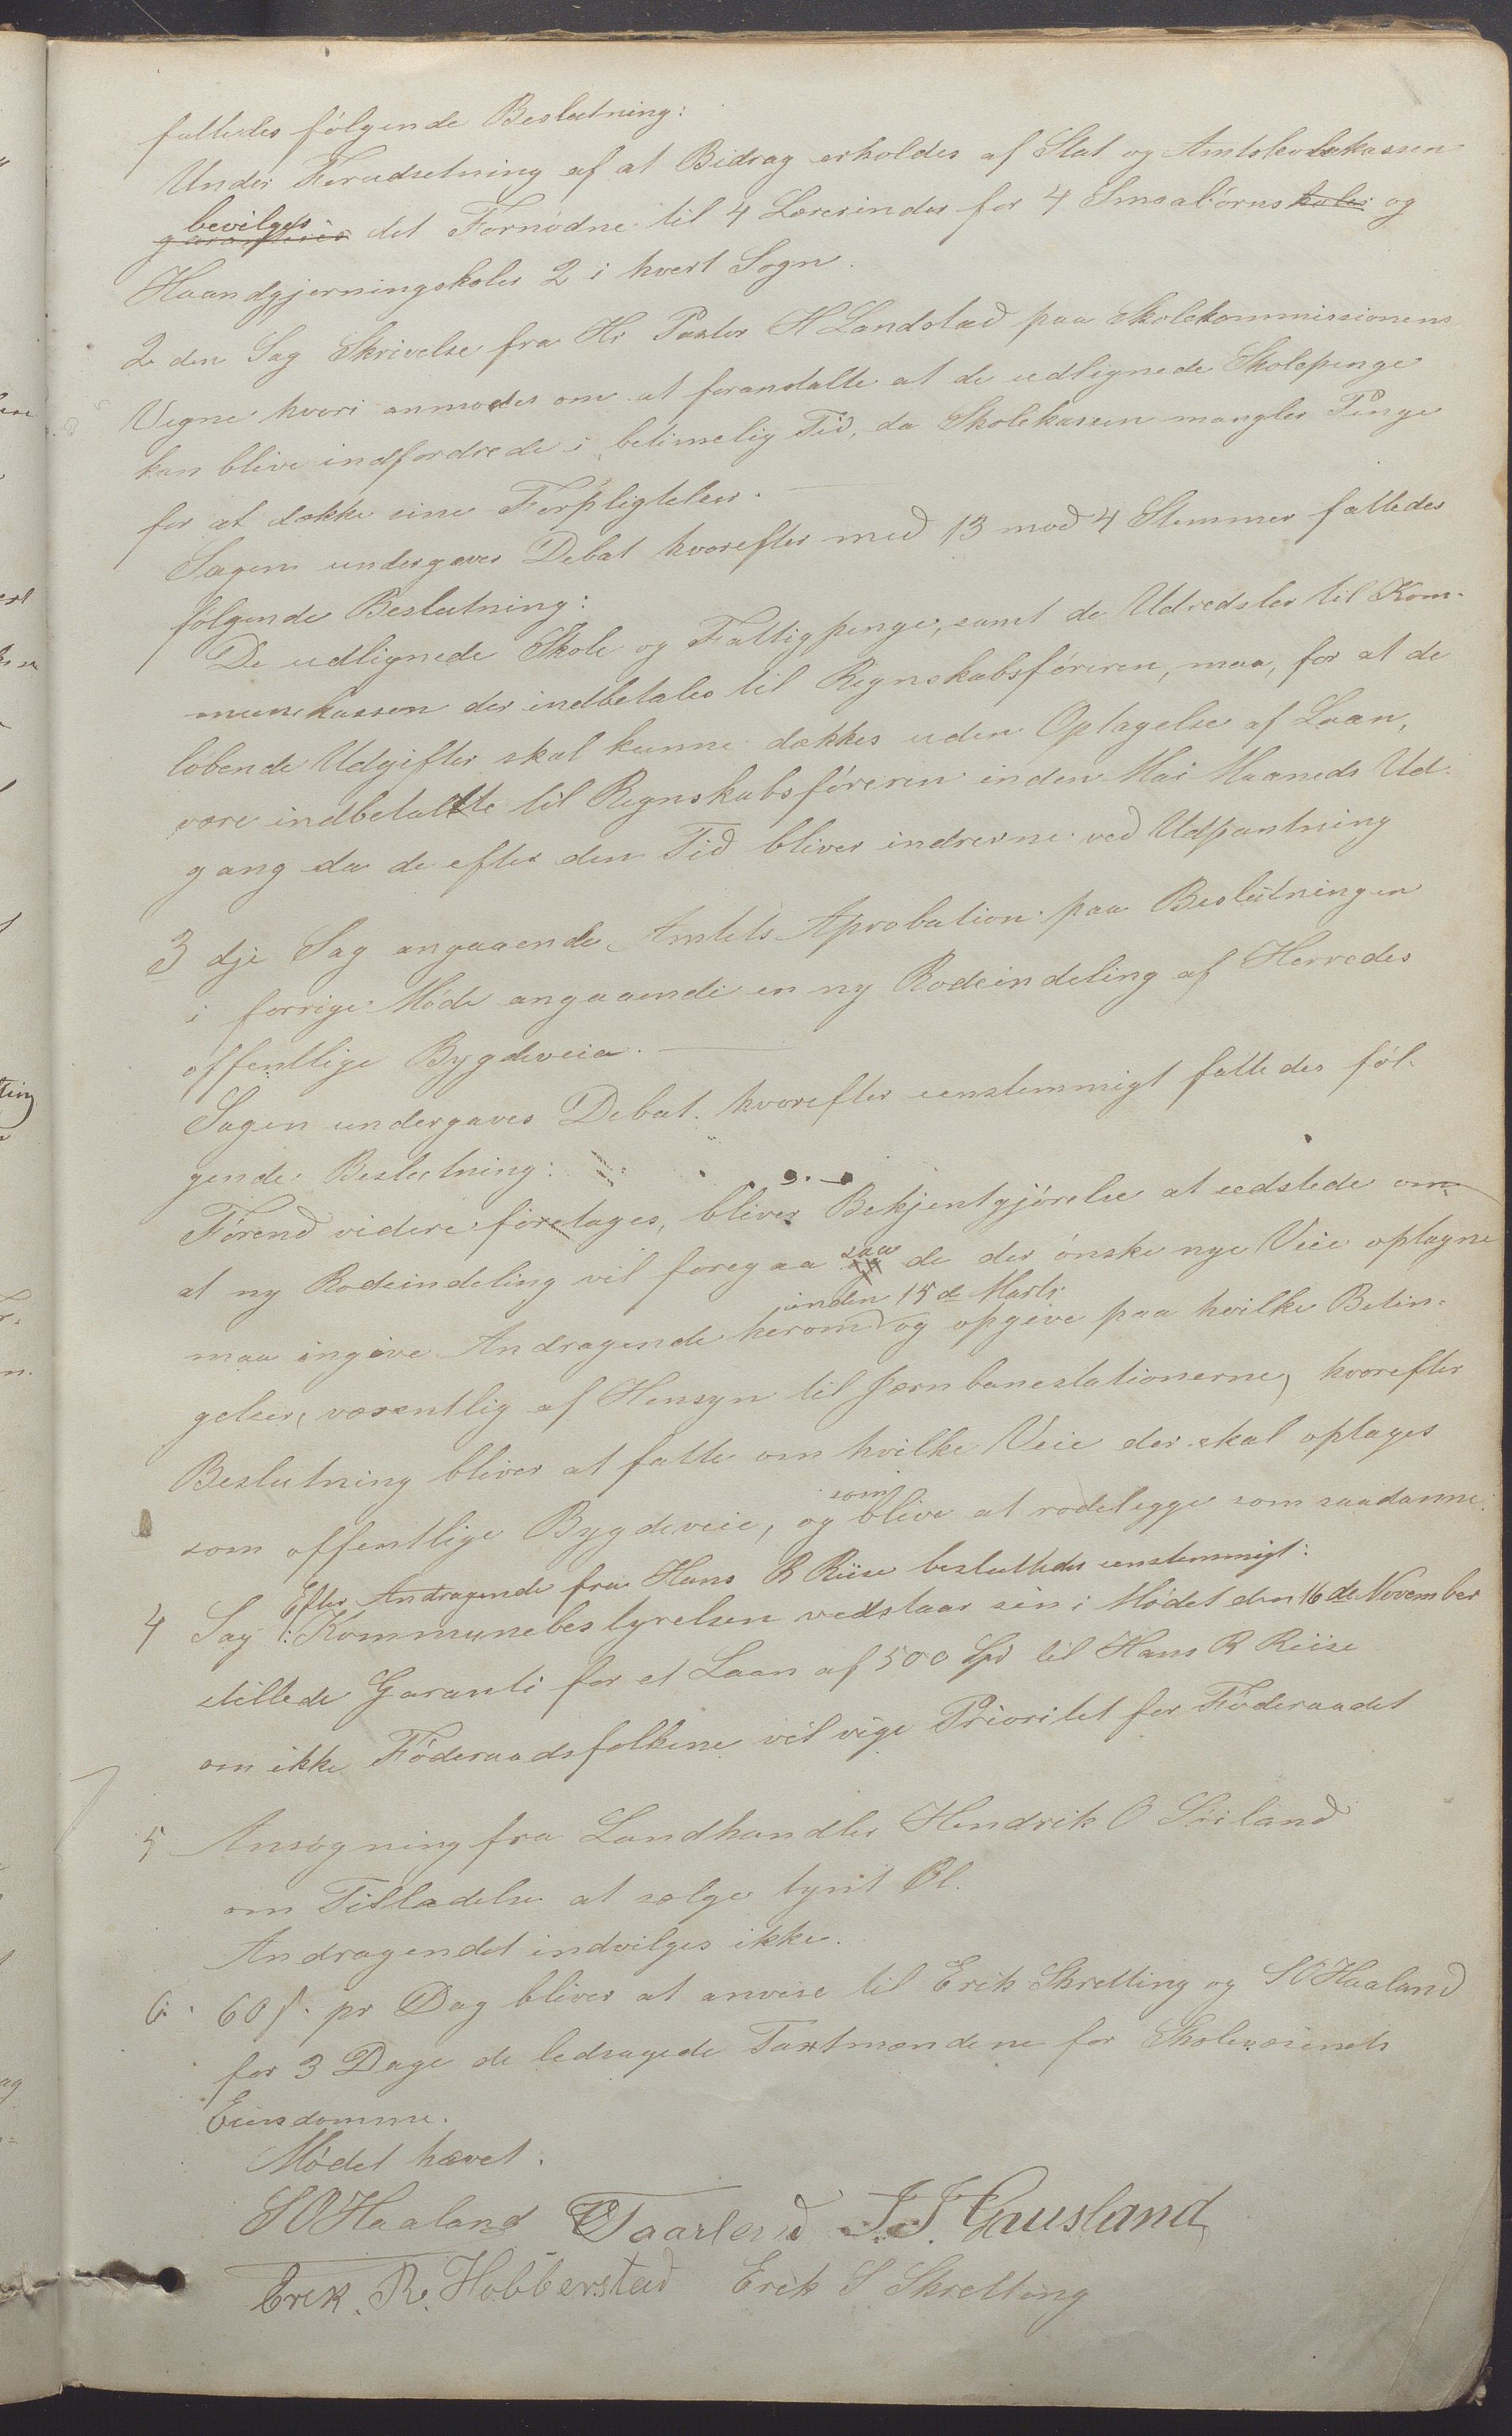 fattedes følgende Beslutning:
Under Forudsetning af at Bidrag erholdes af Stat og Amtskolekassen
bevilges
garanteres det Fornødne til 4 Lærerinder for 4 Smaabørnskoler og
Haandgjerningskoler 2 i hvert Sogn.
2 den Sag Skrivelse fra Hr Pastor H Landstad paa Skolekommissionens
Vegne hvori anmodes om at foranstalte at de udlignede Skolepenge
kan blive indfordrede i betimelig Tid, da Skolekassen mangler Penge
for at dække sine Forpligtelser.
Sagen undergaves Debat hvorefter med 13 mod 4 Stemmer fattedes
følgende Beslutning:
De udlignede Skole og Fattigpenge, samt de Udredsler til Kom-
munekassen der indbetales til Regnskabsføreren, maa, for at de
løbende Udgifter skal kunne dækkes uden Optagelse af Laan,
være indbetalte til Regnskabsføreren inden Mai Maaneds Ud-
gang da de efter den Tid bliver inddrevne ved Udpantning
3 dje Sag angaaende Amtets Aprobation paa Beslutningen
i forrige Møde angaaende en ny Rodeindeling af Herredes
offentlige Bygdeveie.
Sagen undergaves Debat hvorefter eenstemmigt fattedes føl-
gende Beslutning:
Førend videre foretages, bliver Bekjentgjørelse at udstede om
at ny Rodeindeling vil foregaa saa de der ønske nye Veie optagne
inden 15 de Marts
maa ingive Andragende herom og opgive paa hvilke Betin-
gelser, væsentlig af Hensyn til Jernbanestationerne, hvorefter
Beslutning bliver at fatte om hvilke Veie der skal optages
som
som offentlige Bygdeveie, og blive at rodelegge som saadanne.
Efter Andragende fra Hans R Riise besluttedes eenstemmigt:
4 Sag: Kommunebestyrelsen vedstaar sin i Mødet den 16 de November
stillede Garanti for et Laan af 500 Spd til Hans R Riise
om ikke Føderaadsfolkene vil vige Prioritet for Føderaadet
5 Ansøgning fra Landhandler Hendrik O Sørland
om Tilladelse at sælge tynt Øl.
Andragendet indvilges ikke.
6. 60 s. pr Dag bliver at anvise til Erik Skretting og S O Haaland
for 3 Dage de ledsagede Taxtmændene for Skolevæsenets
Eiendomme.
Mødet hævet.
S O Haaland Taarland J. J. Gausland
Erik. R. Hobberstad Erik S Skretting